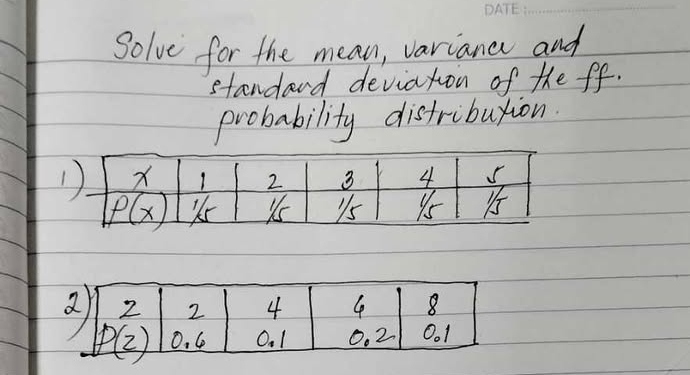 DATE :
Solve for the mean, variance and
standard deviation of the ff.
probability distribution.
1) x 1 2 3 4 5
P(x) 1/5 1/5 1/5 1/5 1/5
2) z 2 4 6 8
P(z) 0.6 0.1 0.2 0.1